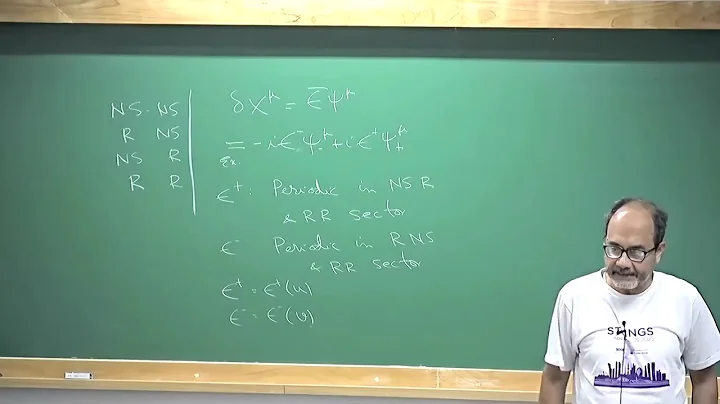 NS-NS
R NS
NS R
R R
δX^μ = ε̄ψ^μ
= -iε^-ψ_-^μ + iε^+ψ_+^μ
Ex.
ε^+: Periodic in NS R
& RR sector
ε^- Periodic in R NS
& RR sector
ε^+ = ε^+(u)
ε^- = ε^-(v)
ST INGS